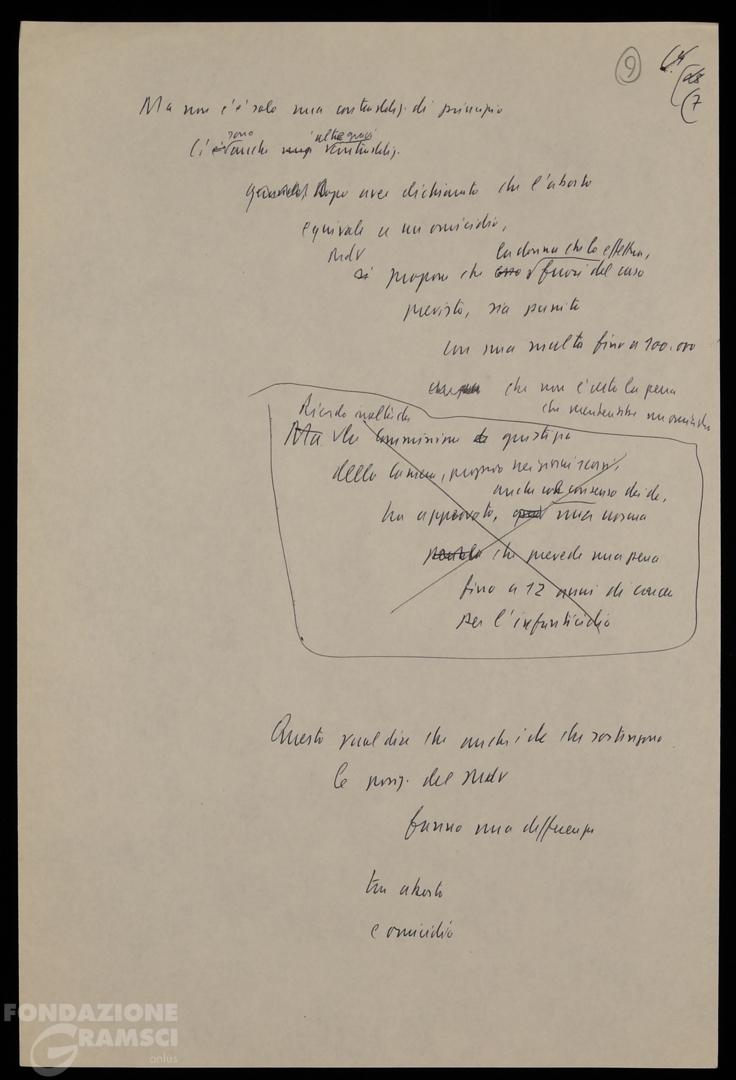 9
Ma non c'è solo una contraddiz. di principio
sono altre gravi
Ci è anche una contraddiz.
quando Dopo aver dichiarato che l'aborto
equivale a un omicidio,
MdV la donna che lo effettua,
si propone che fuori del caso
previsto, sia punita
con una multa fino a 100.000
che non è certo la pena
che meriterebbe un omicidio
Ricordo inoltre che
Ma la Commissione giustizia
della Camera, proprio nei giorni scorsi,
anche col consenso dei dc,
ha approvato, una norma
che prevede una pena
fino a 12 anni di carcere
per l'infanticidio
Questo vuol dire che anche i dc che sostengono
le posiz. del MdV
fanno una differenza
tra aborto
e omicidio
FONDAZIONE
GRAMSCI
onlus